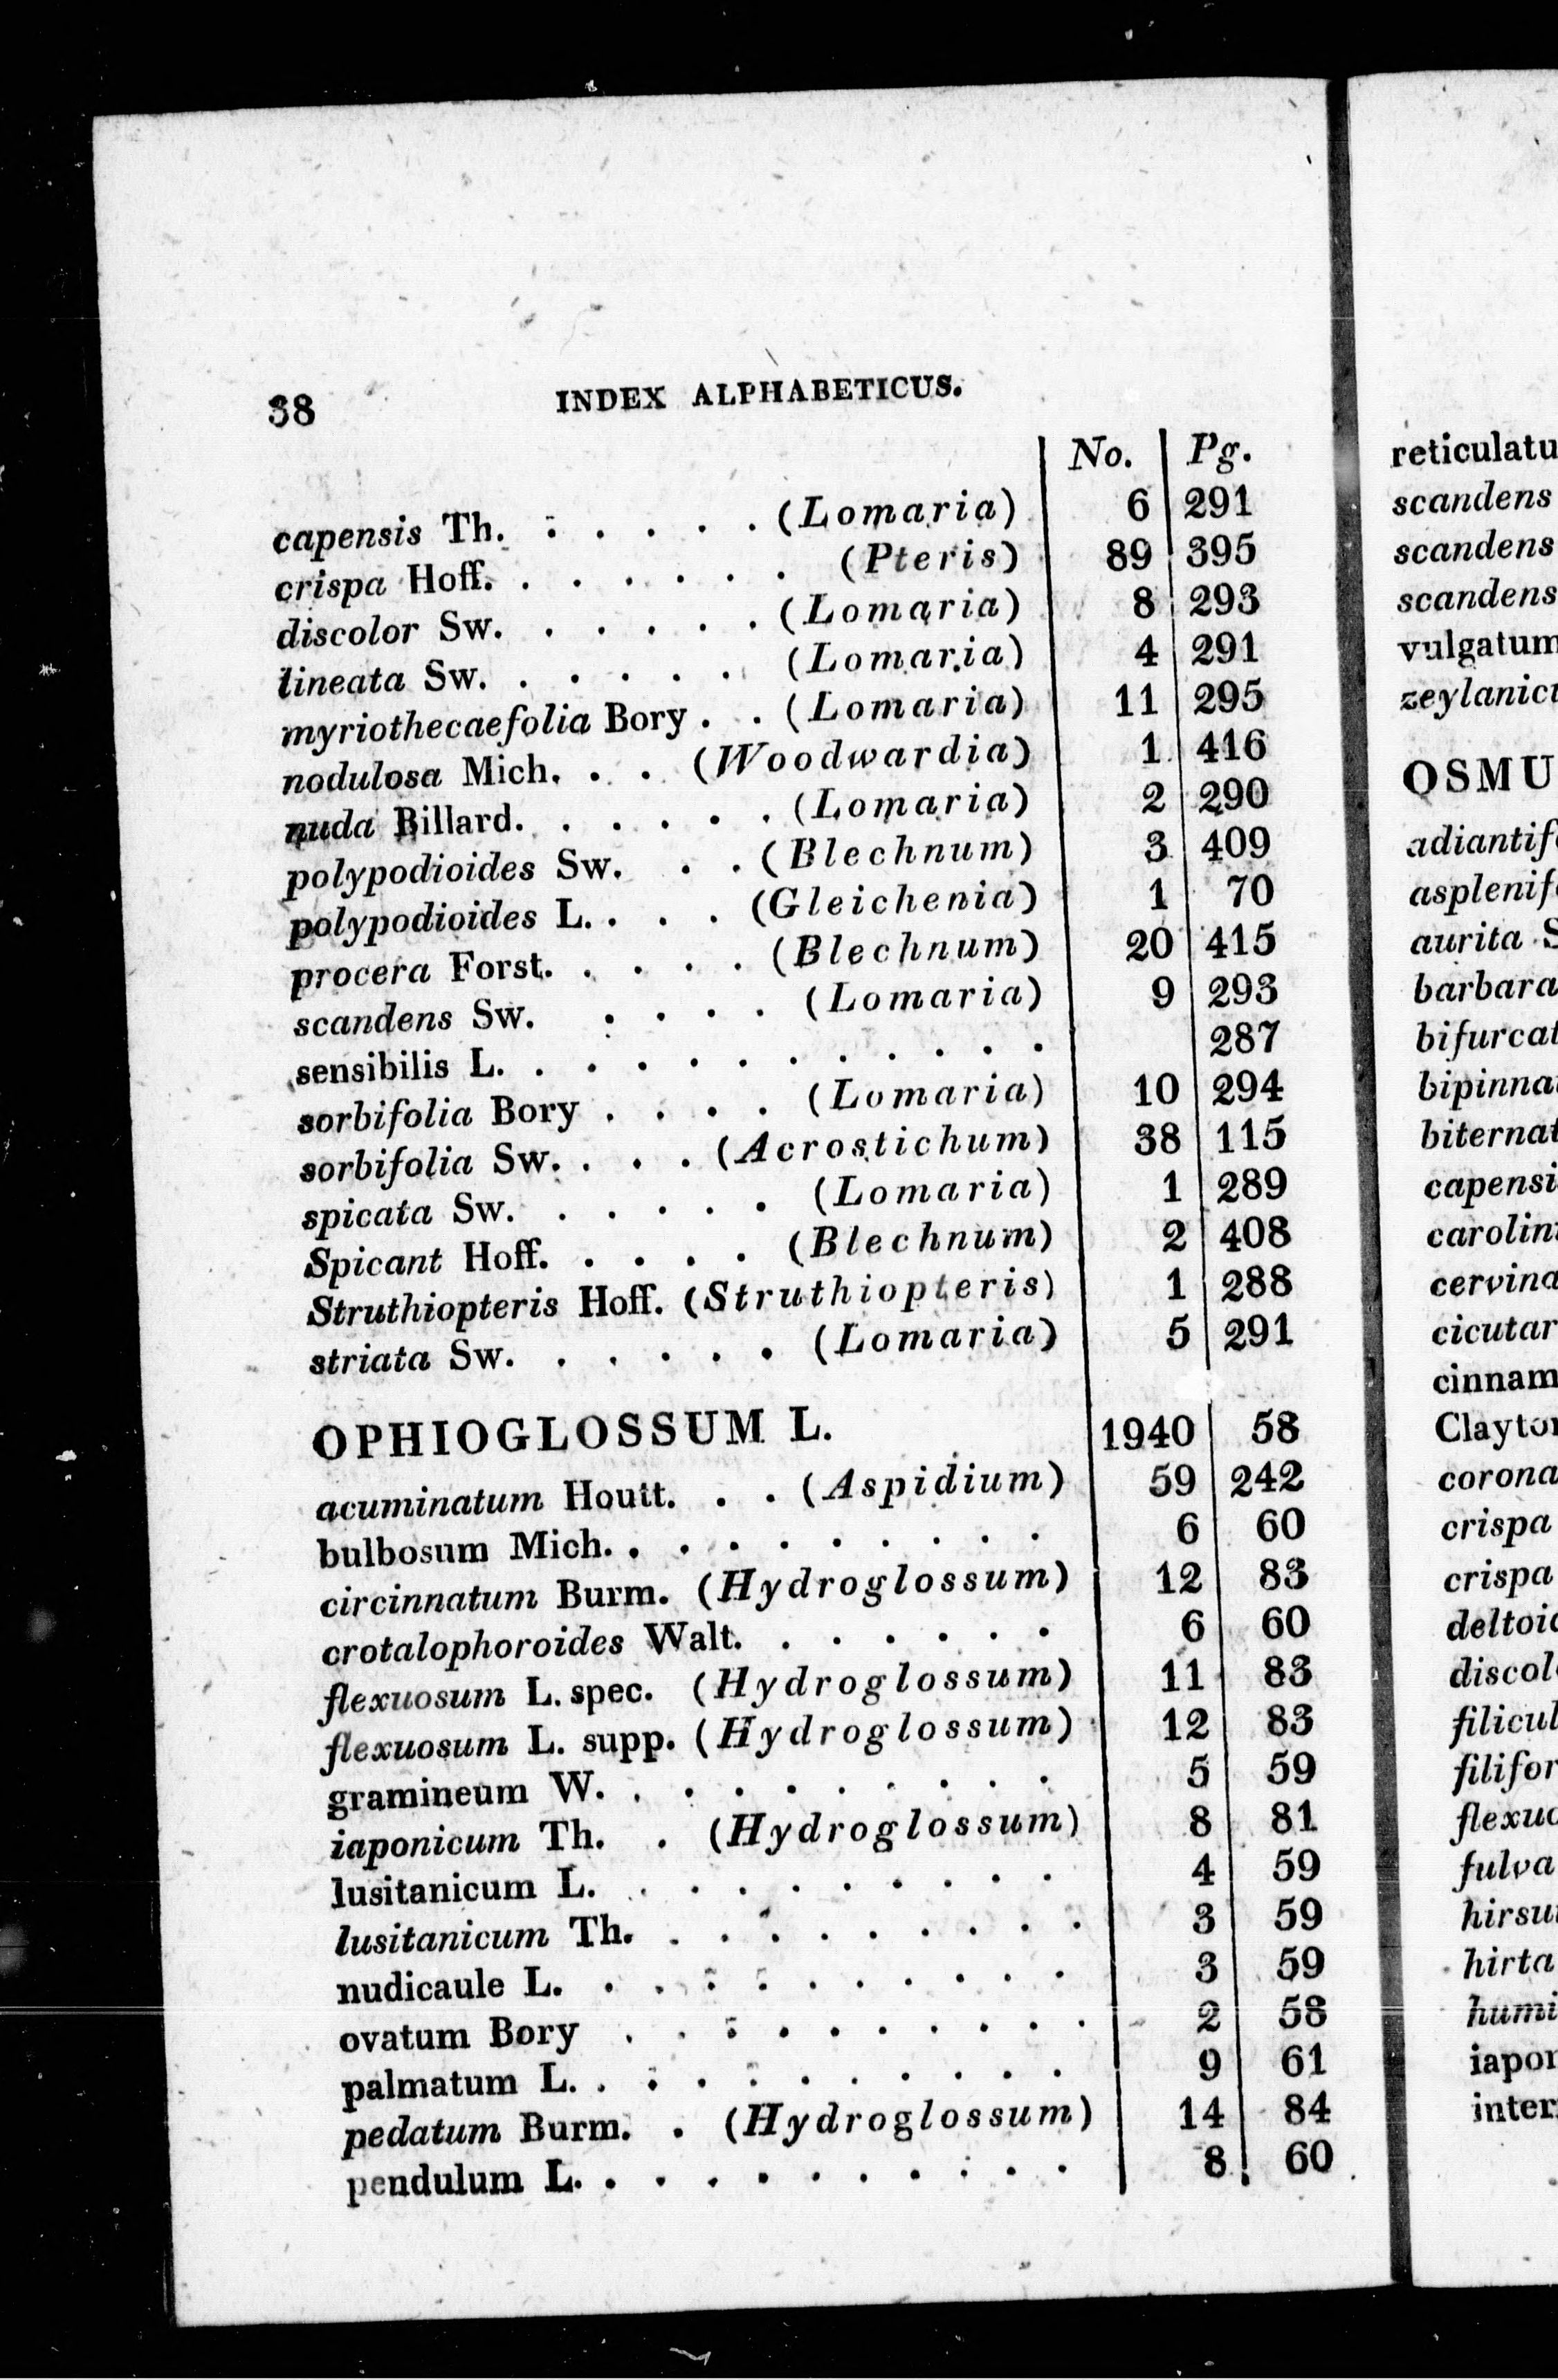 38 INDEX ALPHABETICUS.
No. Pg.
capensis Th. . . . . . (Lomaria) 6 291
crispa Hoff. . . . . . . (Pteris) 89 395
discolor Sw. . . . . . (Lomaria) 8 293
lineata Sw. . . . . . (Lomaria) 4 291
myriothecaefolia Bory . . (Lomaria) 11 295
nodulosa Mich. . . (Woodwardia) 1 416
nuda Billard. . . . . . (Lomaria) 2 290
polypodioides Sw. . . (Blechnum) 3 409
polypodioides L. . . . (Gleichenia) 1 70
procera Forst. . . . . (Blechnum) 20 415
scandens Sw. . . . . (Lomaria) 9 293
sensibilis L. . . . . . . . . . . . 287
sorbifolia Bory . . . . (Lomaria) 10 294
sorbifolia Sw. . . . (Acrostichum) 38 115
spicata Sw. . . . . . (Lomaria) 1 289
Spicant Hoff. . . . . (Blechnum) 2 408
Struthiopteris Hoff. (Struthiopteris) 1 288
striata Sw. . . . . . (Lomaria) 5 291
OPHIOGLOSSUM L. 1940 58
acuminatum Houtt. . . (Aspidium) 59 242
bulbosum Mich. . . . . . . . . . 6 60
circinnatum Burm. (Hydroglossum) 12 83
crotalophoroides Walt. . . . . . . 6 60
flexuosum L. spec. (Hydroglossum) 11 83
flexuosum L. supp. (Hydroglossum) 12 83
gramineum W. . . . . . . . . . 5 59
iaponicum Th. . (Hydroglossum) 8 81
lusitanicum L. . . . . . . . . . 4 59
lusitanicum Th. . . . . . . . . . 3 59
nudicaule L. . . . . . . . . . . 3 59
ovatum Bory . . . . . . . . . . 2 58
palmatum L. . . . . . . . . . . 9 61
pedatum Burm. . (Hydroglossum) 14 84
pendulum L. . . . . . . . . . . 8 60
reticulatu
scandens
scandens
scandens
vulgatum
zeylanicu
OSMU
adiantifo
asplenifo
aurita S
barbara
bifurcat
bipinna
biternat
capensi
carolin
cervina
cicutar
cinnam
Clayton
corona
crispa
crispa
deltoid
discol
filicul
filifor
flexuo
fulva
hirsu
hirta
humi
iapon
inter